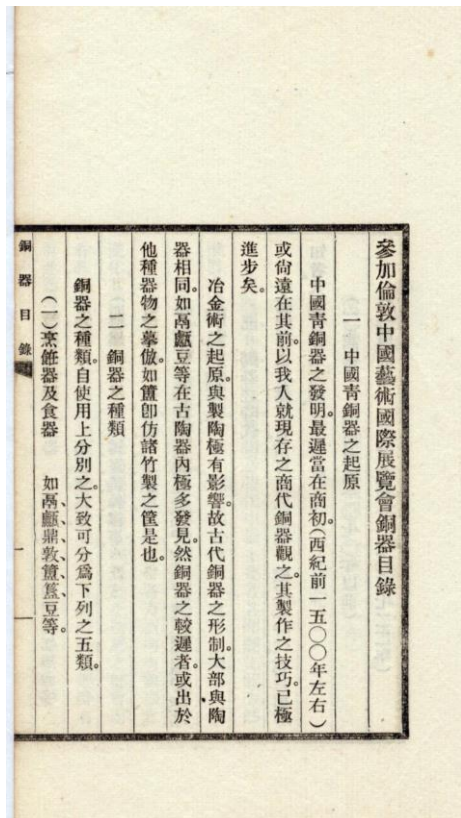 參加倫敦中國藝術國際展覽會銅器目錄
一　中國青銅器之起原
中國青銅器之發明。最遲當在商初（西紀前一五〇〇年左右）
或尙遠在其前。以我人就現存之商代銅器觀之。其製作之技巧。已極
進步矣。
冶金術之起原。與製陶極有影響。故古代銅器之形制。大部與陶
器相同。如鬲甗豆等在古陶器內極多發見。然銅器之較遲者。或出於
他種器物之摹倣。如簠卽仿諸竹製之筐是也。
二　銅器之種類
銅器之種類。自使用上分別之。大致可分爲下列之五類。
（一）烹飪器及食器　如鬲、甗、鼎、敦、簠、簋、豆等。
銅器目錄
一